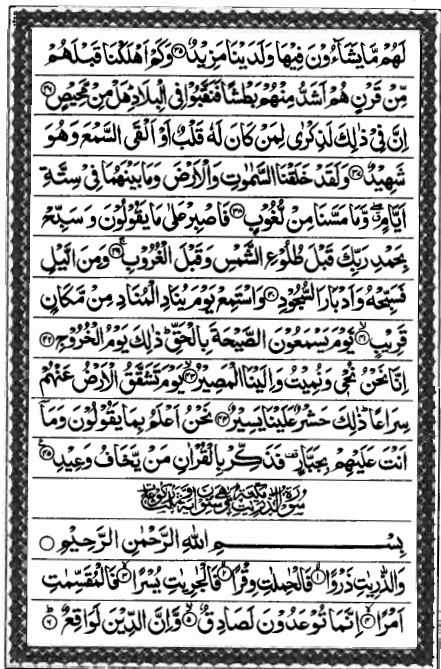 لَهُمْ مَّا يَشَآءُوْنَ فِيْهَا وَلَدَيْنَا مَزِيْدٌ ۝۳۵ وَكَمْ اَهْلَكْنَا قَبْلَهُمْ
مِّنْ قَرْنٍ هُمْ اَشَدُّ مِنْهُمْ بَطْشًا فَنَقَّبُوْا فِی الْبِلَادِ ؕ هَلْ مِنْ مَّحِيْصٍ ۝۳۶
اِنَّ فِیْ ذٰلِكَ لَذِكْرٰی لِمَنْ كَانَ لَهٗ قَلْبٌ اَوْ اَلْقَی السَّمْعَ وَهُوَ
شَهِيْدٌ ۝۳۷ وَلَقَدْ خَلَقْنَا السَّمٰوٰتِ وَالْاَرْضَ وَمَا بَيْنَهُمَا فِیْ سِتَّةِ
اَيَّامٍ ۖۗ وَّمَا مَسَّنَا مِنْ لُّغُوْبٍ ۝۳۸ فَاصْبِرْ عَلٰی مَا يَقُوْلُوْنَ وَسَبِّحْ
بِحَمْدِ رَبِّكَ قَبْلَ طُلُوْعِ الشَّمْسِ وَقَبْلَ الْغُرُوْبِ ۝۳۹ وَمِنَ الَّيْلِ
فَسَبِّحْهُ وَاَدْبَارَ السُّجُوْدِ ۝۴۰ وَاسْتَمِعْ يَوْمَ يُنَادِ الْمُنَادِ مِنْ مَّكَانٍ
قَرِيْبٍ ۝۴۱ يَّوْمَ يَسْمَعُوْنَ الصَّيْحَةَ بِالْحَقِّ ؕ ذٰلِكَ يَوْمُ الْخُرُوْجِ ۝۴۲
اِنَّا نَحْنُ نُحْیٖ وَنُمِيْتُ وَاِلَيْنَا الْمَصِيْرُ ۝۴۳ يَوْمَ تَشَقَّقُ الْاَرْضُ عَنْهُمْ
سِرَاعًا ؕ ذٰلِكَ حَشْرٌ عَلَيْنَا يَسِيْرٌ ۝۴۴ نَحْنُ اَعْلَمُ بِمَا يَقُوْلُوْنَ وَمَآ
اَنْتَ عَلَيْهِمْ بِجَبَّارٍ ۫ فَذَكِّرْ بِالْقُرْاٰنِ مَنْ يَّخَافُ وَعِيْدِ ۝۴۵
بِسْمِ اللّٰهِ الرَّحْمٰنِ الرَّحِيْمِ ۝
وَالذّٰرِيٰتِ ذَرْوًا ۝۱ فَالْحٰمِلٰتِ وِقْرًا ۝۲ فَالْجٰرِيٰتِ يُسْرًا ۝۳ فَالْمُقَسِّمٰتِ
اَمْرًا ۝۴ اِنَّمَا تُوْعَدُوْنَ لَصَادِقٌ ۝۵ وَّاِنَّ الدِّيْنَ لَوَاقِعٌ ۝۶